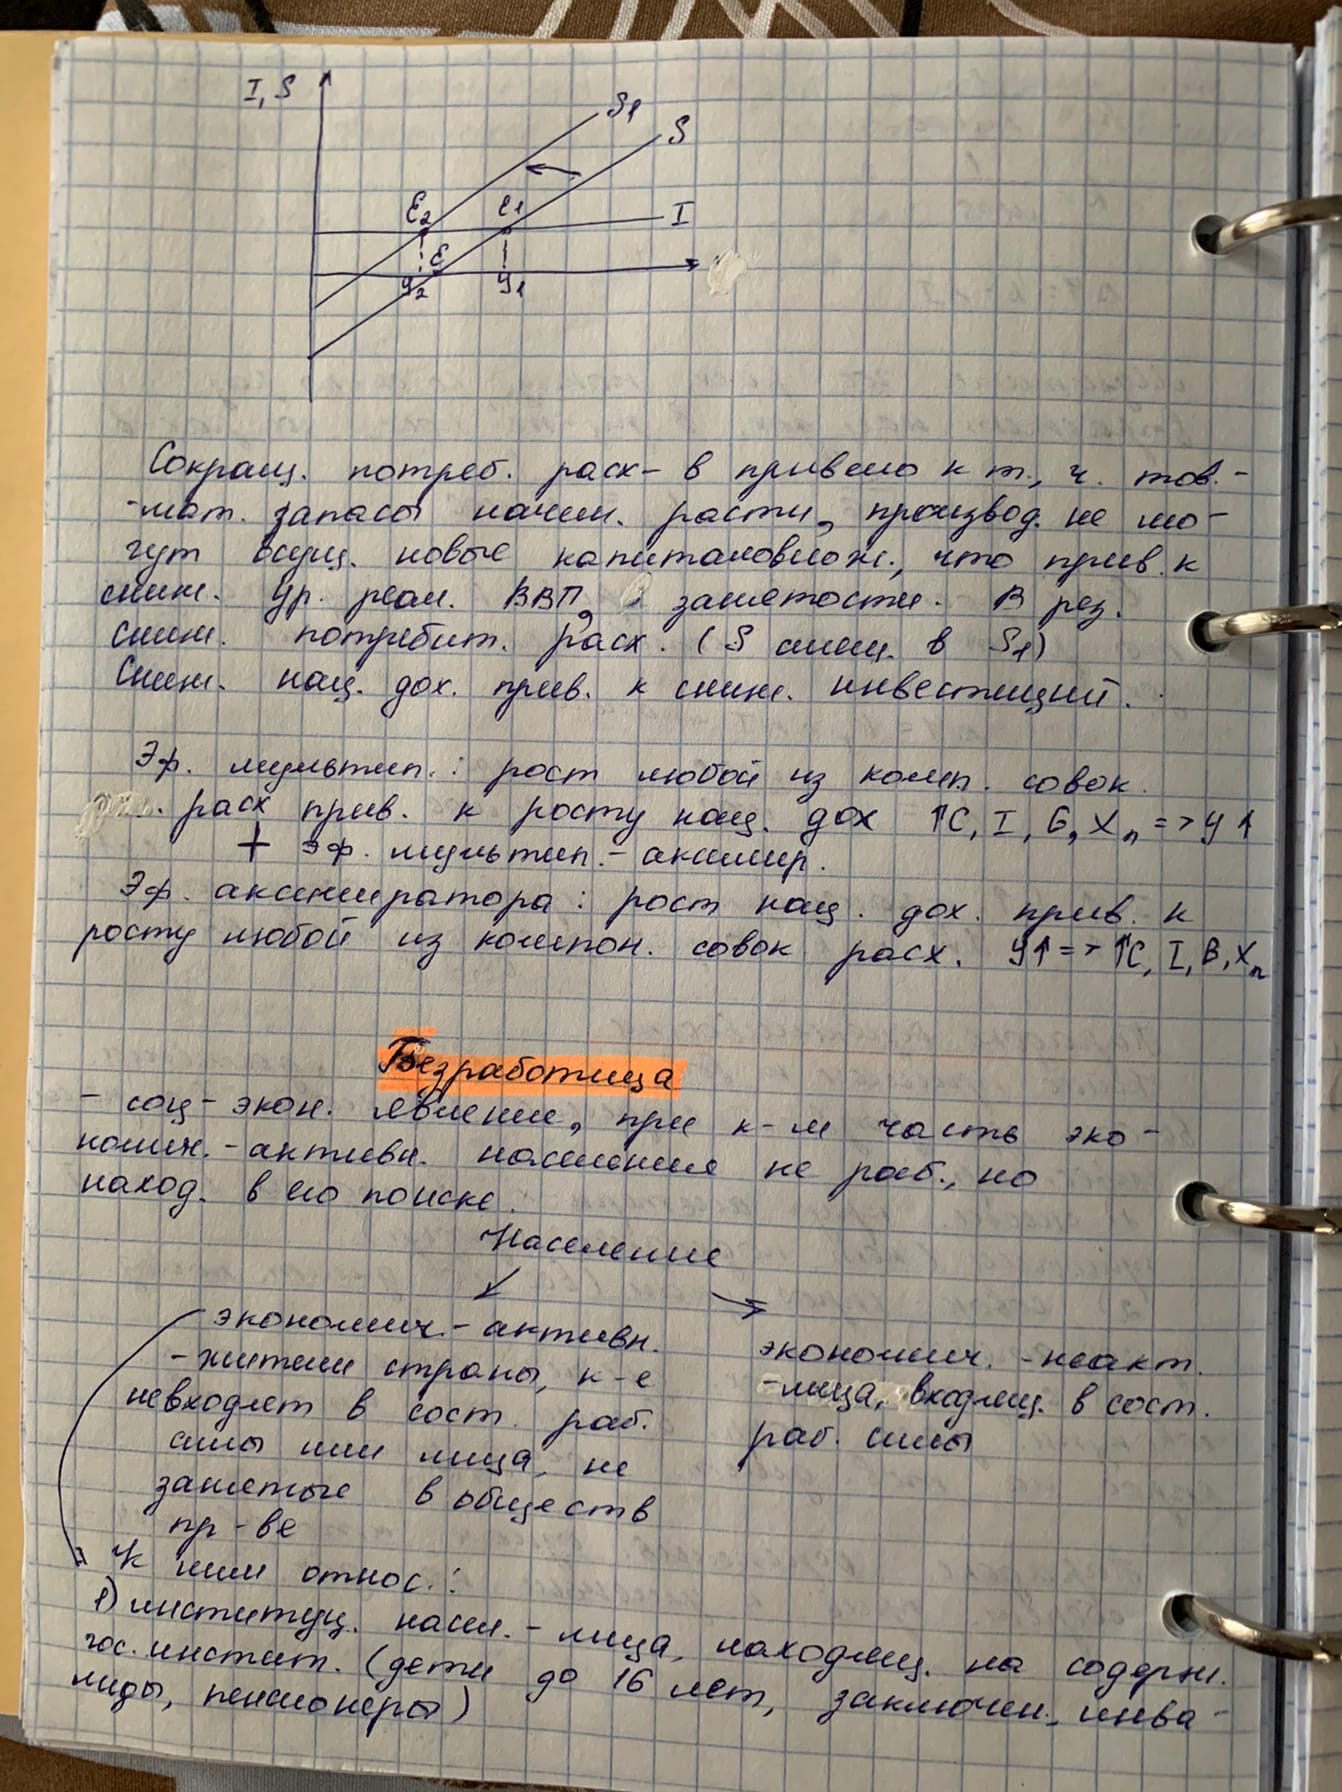 I, S
S1
S
I
E2 E1
E
y2 y1
Сокращ. потреб. расх-в привело к т., ч. тов.-
-мат. запасы начин. расти, производ. не мо-
гут осущ. новые капиталовлож., что прив. к
сниж. ур. реал. ВВП, занятости. В рез.
сниж. потребит. расх. (S смещ. в S1)
Сниж. нац. дох. прив. к сниж. инвестиций.
Эф. мультип.: рост любой из комп. совок.
расх прив. к росту нац. дох ↑C, I, G, Xn => y↑
+ эф. мультип. - акселир.
Эф. акселиратора: рост нац. дох. прив. к
росту любой из компон. совок расх. y↑ => ↑C, I, B, Xn
Безработица
- соц-экон. явление, при к-м часть эко-
номич.-активн. населения не раб., но
наход. в его поиске.
Население
экономич.-активн.
- жители страны, к-е
невходят в сост. раб.
силы или лица, не
занятые в обществ
пр-ве
экономич. -неакт.
-лица, входящ. в сост.
раб. силы
К ним относ.:
1) институц. насел. - лица, находящ. на содерж.
гос. инстит. (дети до 16 лет, заключен., инва-
лиды, пенсионеры)